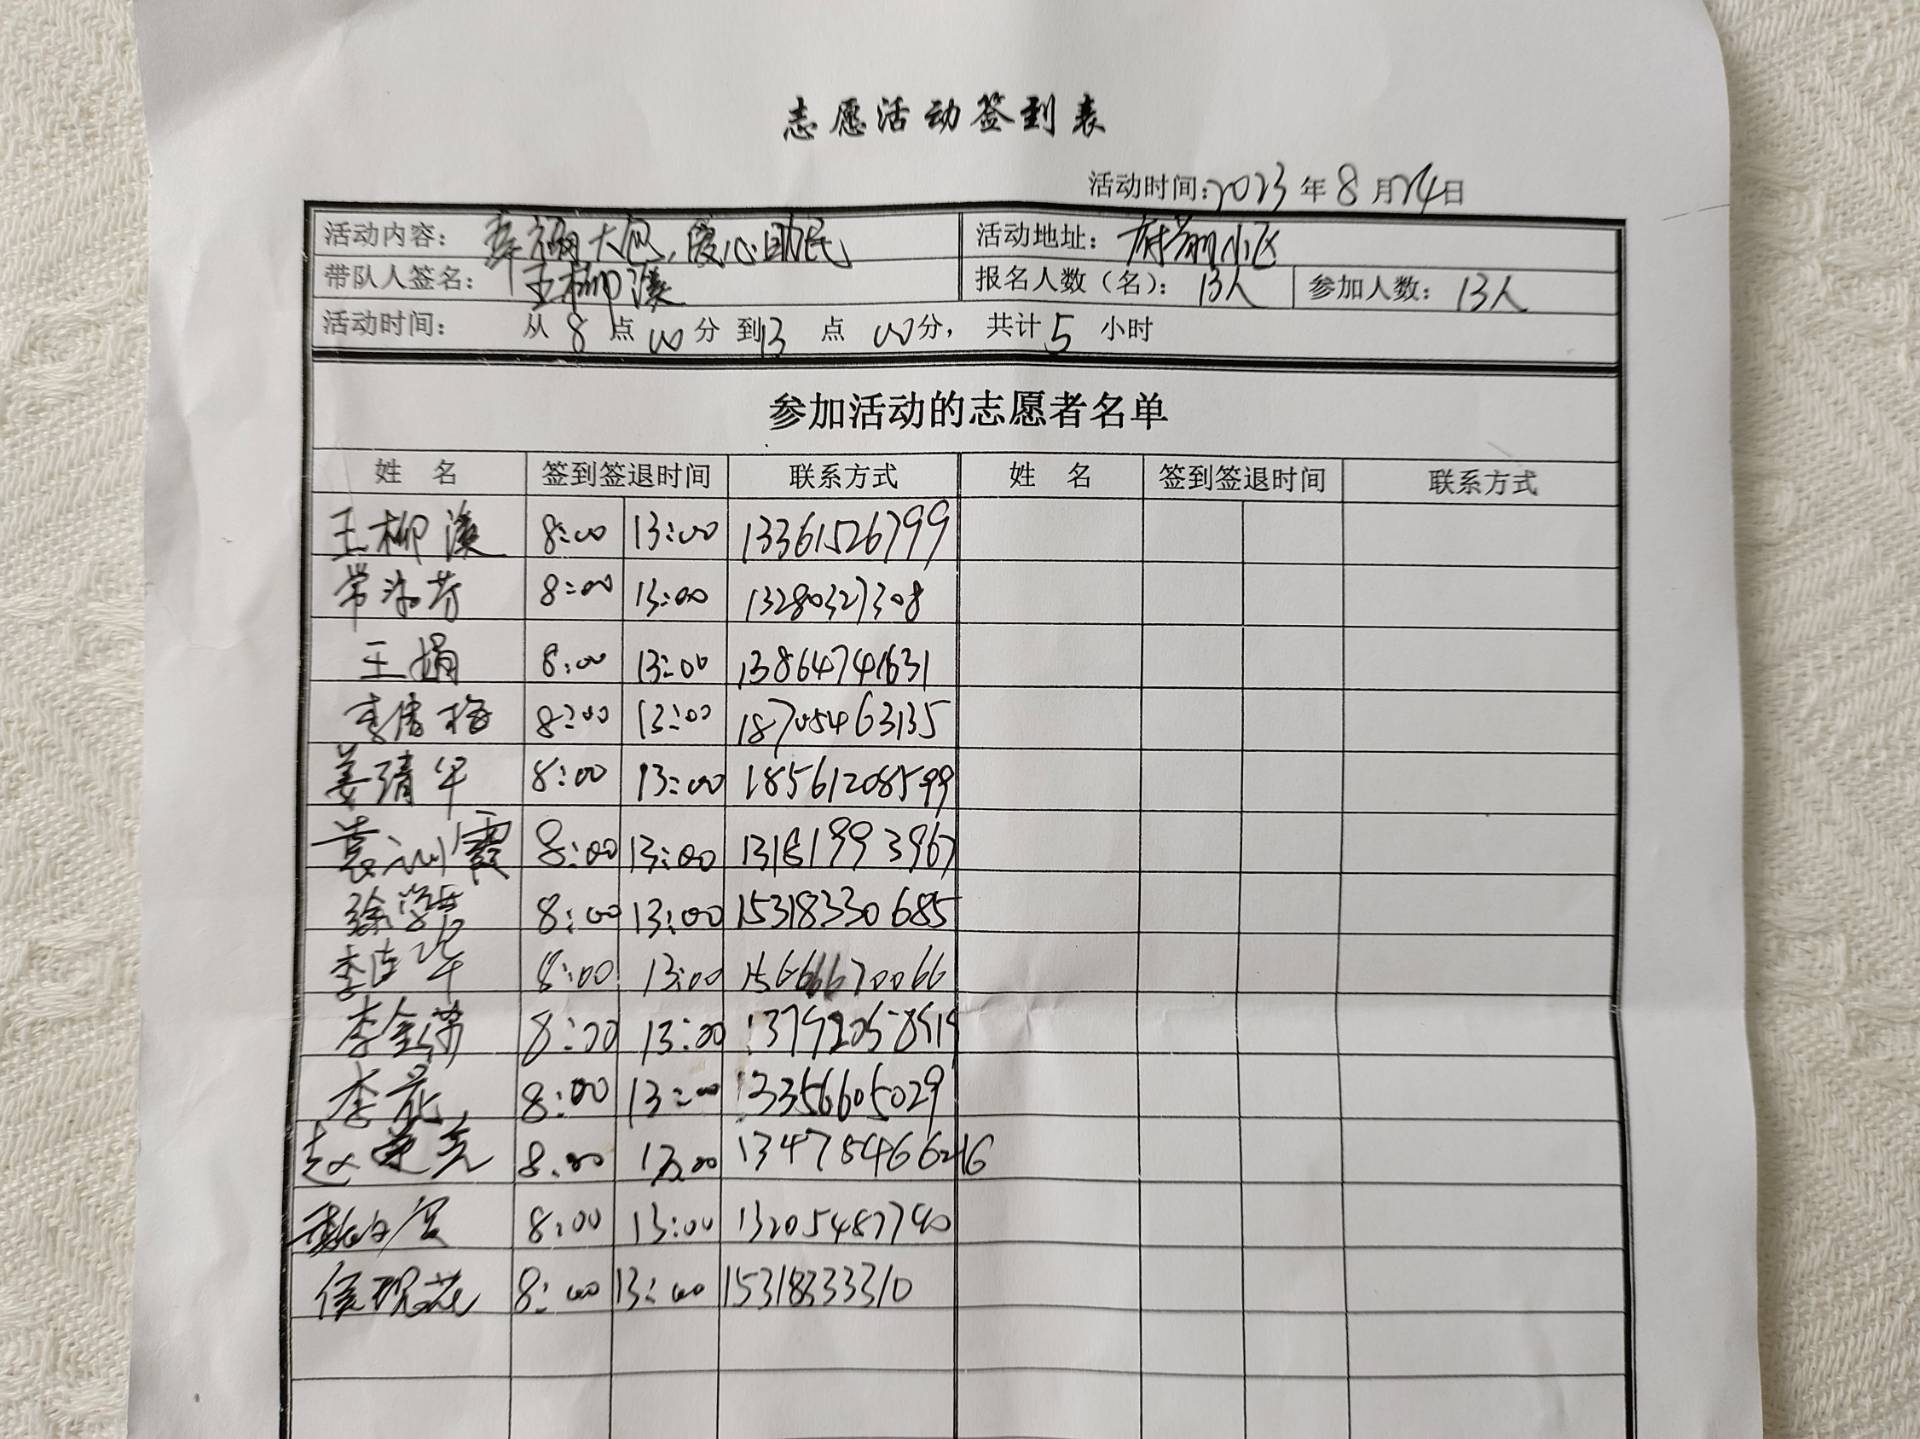 志愿活动签到表
活动时间:2023年8月24日
活动内容: 幸福大包,爱心助民 活动地址: 小区
带队人签名: 王柳溪 报名人数(名): 13人 参加人数: 13人
活动时间: 从8点00分到13点00分, 共计5小时
参加活动的志愿者名单
姓 名 签到签退时间 联系方式 姓 名 签到签退时间 联系方式
王柳溪 8:00 13:00 13361526799
常淑芬 8:00 13:00 13280327308
王娟 8:00 13:00 13864741631
李倩梅 8:00 13:00 18705463135
姜清华 8:00 13:00 18561208599
袁训霞 8:00 13:00 13181993967
徐学芹 8:00 13:00 15318330685
李连华 8:00 13:00
李金荣 8:00 13:00
李花 8:00 13:00 13356605029
赵莲亮 8:00 13:00
8:00 13:00 13205487790
侯现花 8:00 13:00 15318333310